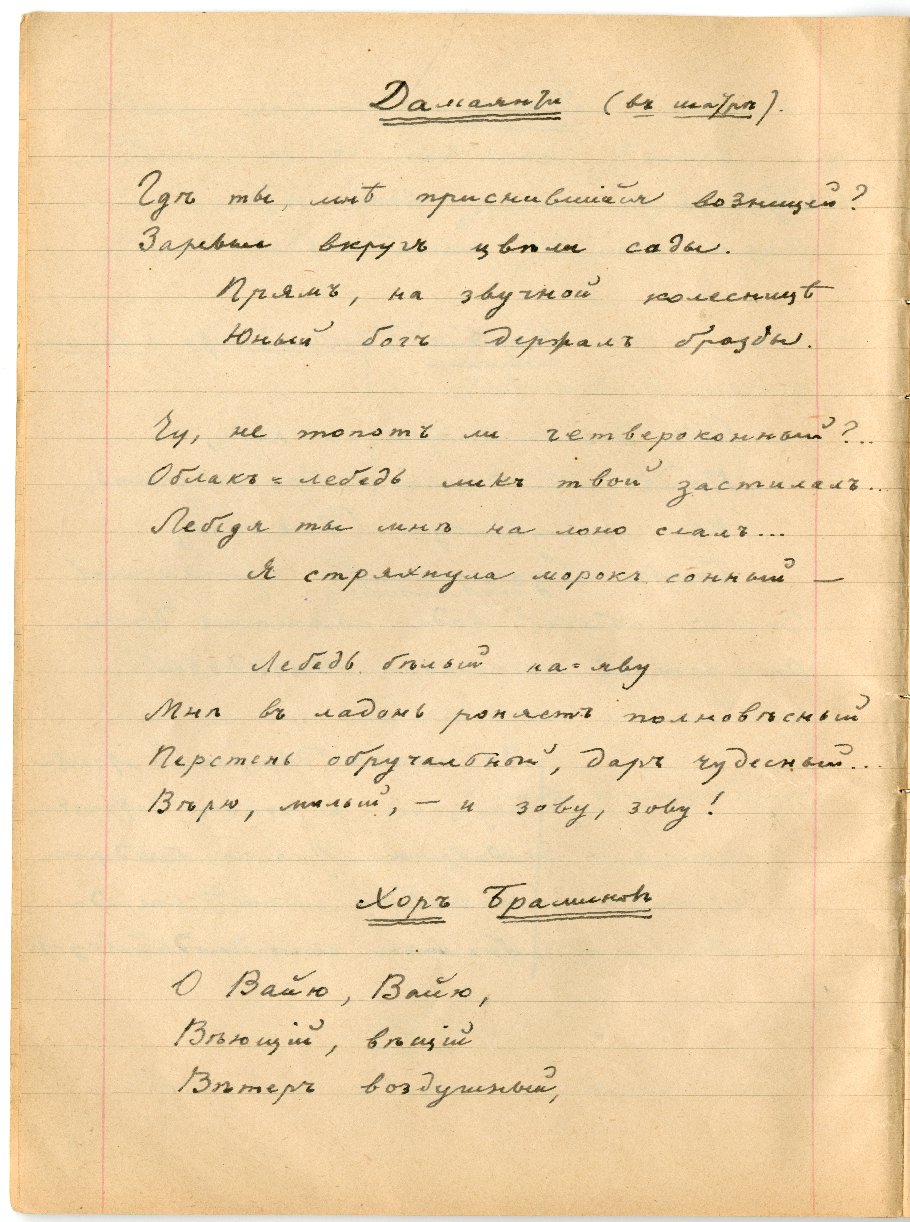 Дамаянти (въ шатрѣ).
Гдѣ ты, мнѣ приснившійся возницей?
Заревые вкругъ цвѣли сады.
Прямъ, на звучной колесницѣ
Юный богъ держалъ бразды.
Чу, не топотъ ли четвероконный?..
Облакъ-лебедь ликъ твой застилалъ...
Лебедя ты мнѣ на лоно слалъ...
Я стряхнула морокъ сонный —
Лебедь бѣлый на-яву
Мнѣ въ ладонь роняетъ полновѣсный
Перстень обручальный, даръ чудесный...
Вѣрю, милый, — и зову, зову!
Хоръ Браминовъ
О Вайю, Вайю,
Вѣющій, вѣщій
Вѣтеръ воздушный,